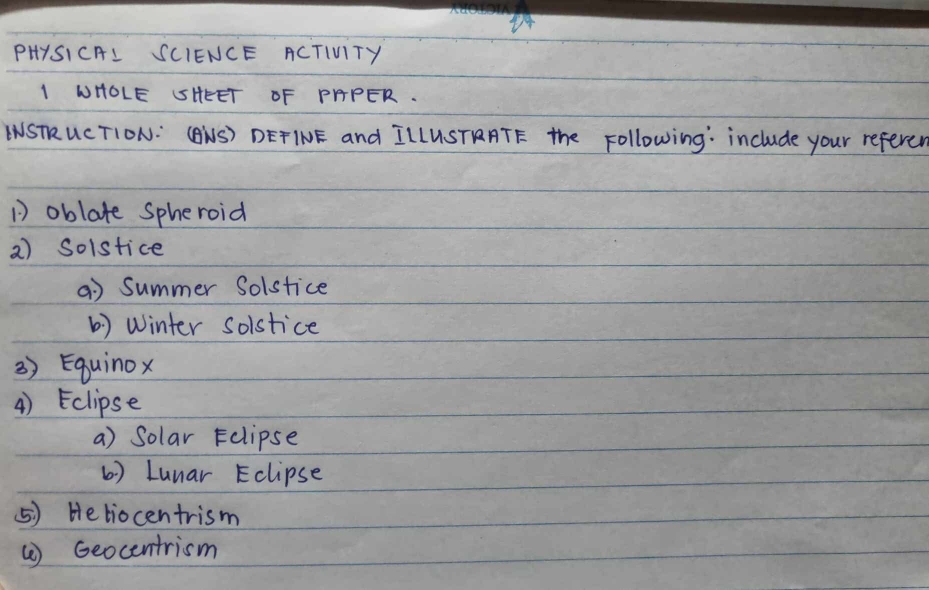 VICTORY
PHYSICAL SCIENCE ACTIVITY
1 WHOLE SHEET OF PAPER.
INSTRUCTION: (ANS) DEFINE and ILLUSTRATE the Following: include your referen
1.) Oblate Spheroid
2) Solstice
a.) Summer Solstice
b.) Winter Solstice
3) Equinox
4) Eclipse
a) Solar Eclipse
b.) Lunar Eclipse
5.) Heliocentrism
6) Geocentrism